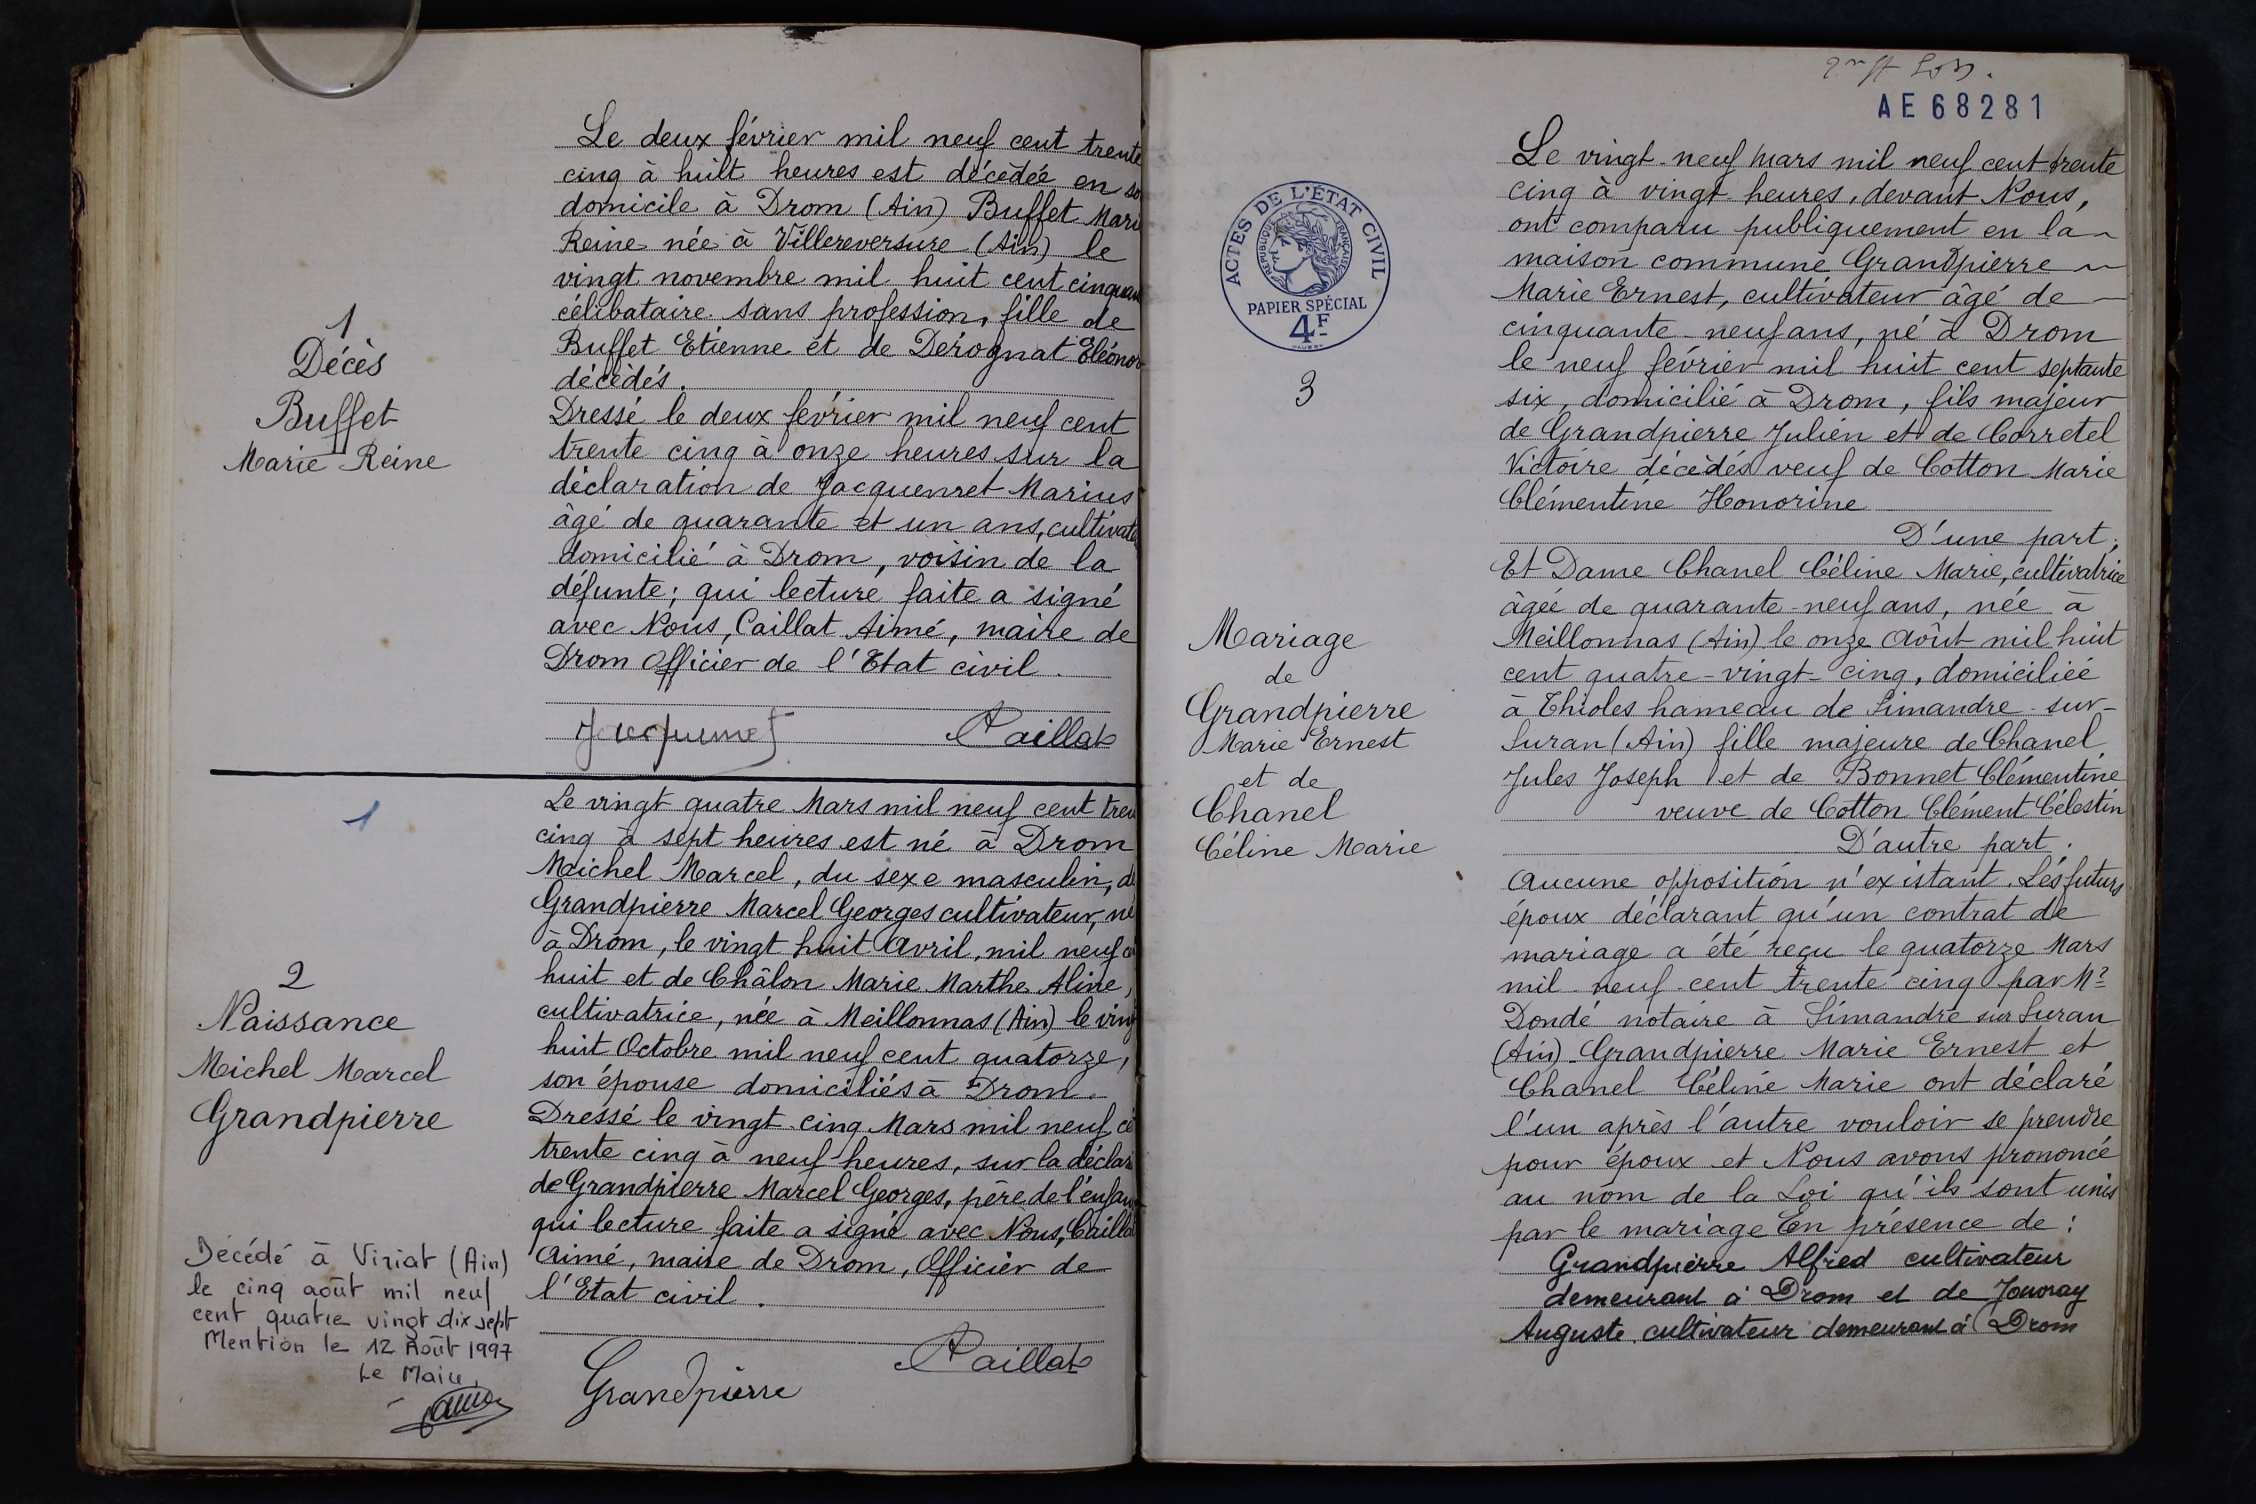 1
Décès
Buffet
Marie Reine
Le deux février mil neuf cent trente
cinq à huit heures est décédée en so
domicile à Drom (Ain) Buffet Mari
Reine née à Villereversure (Ain) le
vingt novembre mil huit cent cinquan
célibataire sans profession, fille de
Buffet Etienne et de Derognat Eléonor
décédés.
Dressé le deux février mil neuf cent
trente cinq à onze heures sur la
déclaration de Jacquenret Marius
âgé de quarante et un ans, cultivate
domicilié à Drom, voisin de la
défunte; qui lecture faite a signé
avec Nous, Caillat Aimé, maire de
Drom Officier de l'Etat civil.
Caillat
1
2
Naissance
Michel Marcel
Grandpierre
Le vingt quatre Mars mil neuf cent tren
cinq à sept heures est né à Drom
Michel Marcel, du sexe masculin, de
Grandpierre Marcel Georges cultivateur, né
à Drom, le vingt huit Avril, mil neuf ce
huit et de Châlon Marie Marthe Aline,
cultivatrice, née à Meillonnas (Ain) le ving
huit Octobre mil neuf cent quatorze,
son épouse domiciliés à Drom.
Dressé le vingt cinq Mars mil neuf ce
trente cinq à neuf heures, sur la déclar
de Grandpierre Marcel Georges, père de l'enfan
qui lecture faite a signé avec Nous, Caillat
Aimé, maire de Drom, Officier de
l'Etat civil.
Grandpierre
Caillat
Décédé à Viriat (Ain)
le cinq août mil neuf
cent quatre vingt dix sept
Mention le 12 Août 1997
Le Maire,
AE 68281
ACTES DE L'ÉTAT CIVIL
RÉPUBLIQUE FRANÇAISE
PAPIER SPÉCIAL
4F
3
Mariage
de
Grandpierre
Marie Ernest
et de
Chanel
Céline Marie
Le vingt-neuf Mars mil neuf cent trente
cinq à vingt heures, devant Nous,
ont comparu publiquement en la
maison commune Grandpierre
Marie Ernest, cultivateur âgé de
cinquante-neuf ans, né à Drom
le neuf février mil huit cent septante
six, domicilié à Drom, fils majeur
de Grandpierre Julien et de Corretel
Victoire décédés veuf de Cotton Marie
Clémentine Honorine
D'une part;
Et Dame Chanel Céline Marie, cultivatrice
âgée de quarante-neuf ans, née à
Meillonnas (Ain) le onze Août mil huit
cent quatre-vingt-cinq, domiciliée
à Thioles hameau de Simandre-sur-
Suran (Ain) fille majeure de Chanel
Jules Joseph et de Bonnet Clémentine
veuve de Cotton Clément Célestin
D'autre part.
Aucune opposition n'existant. Les futurs
époux déclarant qu'un contrat de
mariage a été reçu le quatorze Mars
mil neuf cent trente cinq par Me
Dondé notaire à Simandre sur Suran
(Ain) Grandpierre Marie Ernest et
Chanel Céline Marie ont déclaré
l'un après l'autre vouloir se prendre
pour époux et Nous avons prononcé
au nom de la Loi qu'ils sont unis
par le mariage En présence de:
Grandpierre Alfred cultivateur
demeurant à Drom et de Jouvray
Auguste cultivateur demeurant à Drom